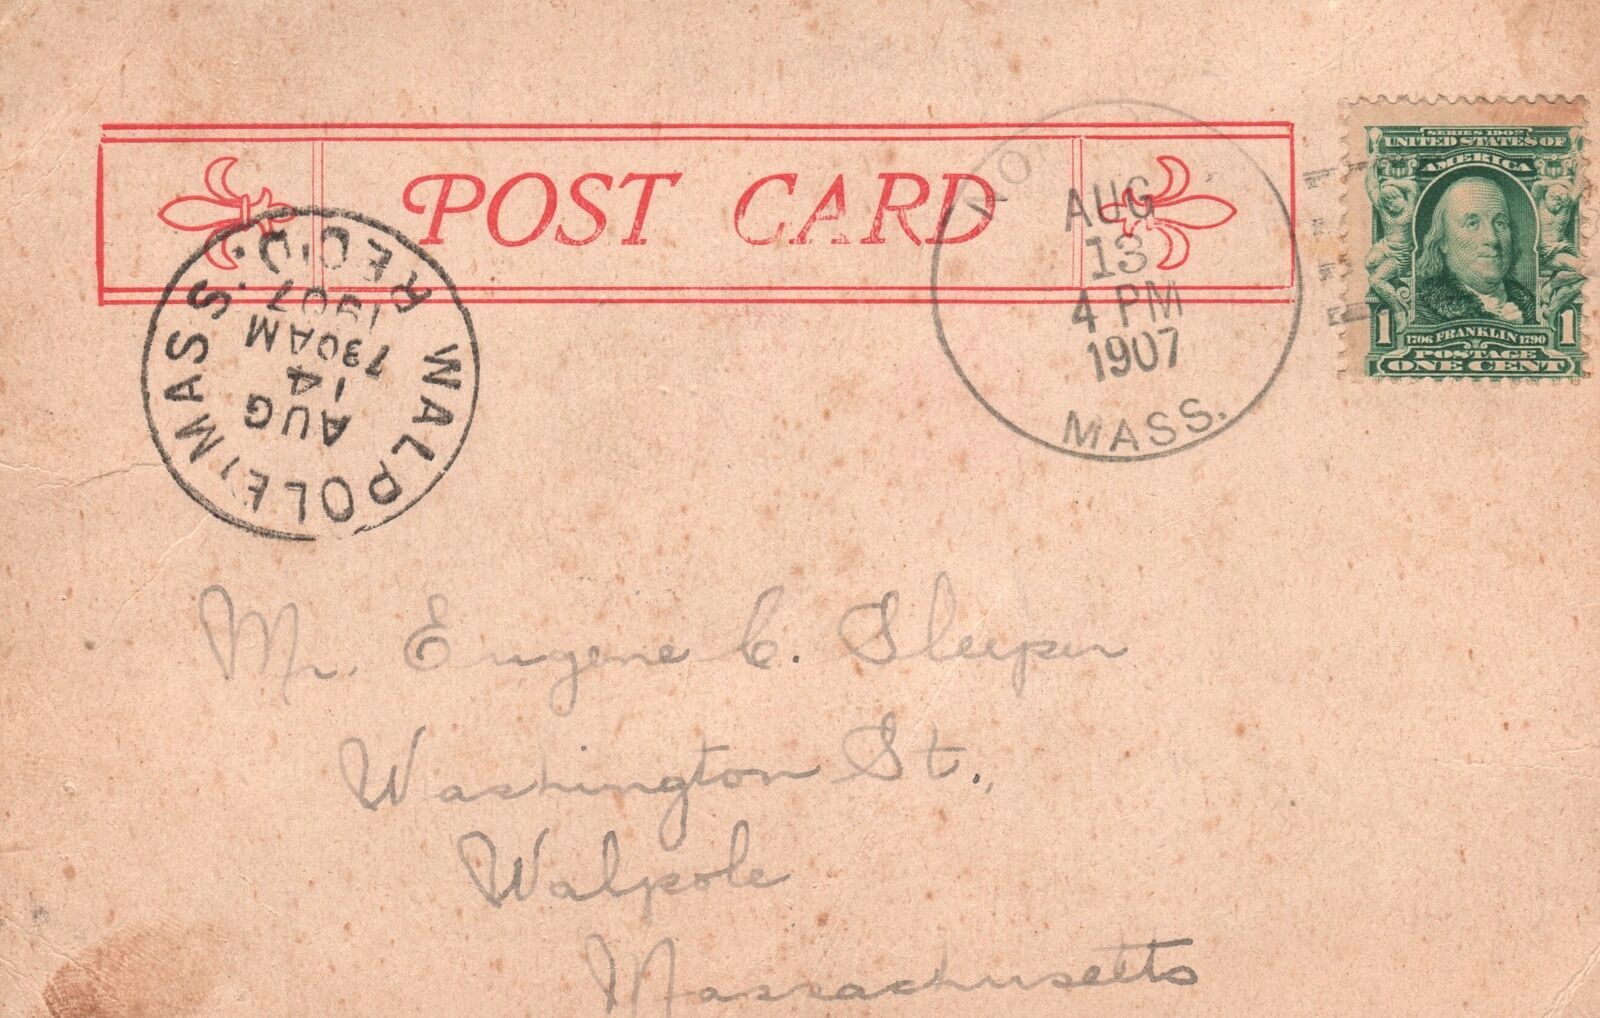 POST CARD
AUG
13
4 PM
1907
MASS.
SERIES 1902
UNITED STATES OF
AMERICA
1 1
1706 FRANKLIN 1790
POSTAGE
ONE CENT
WALPOLE, MASS.
AUG
14
730AM
1907
REC'D.
Mr. Eugene C. Sleeper
Washington St.,
Walpole
Massachusetts